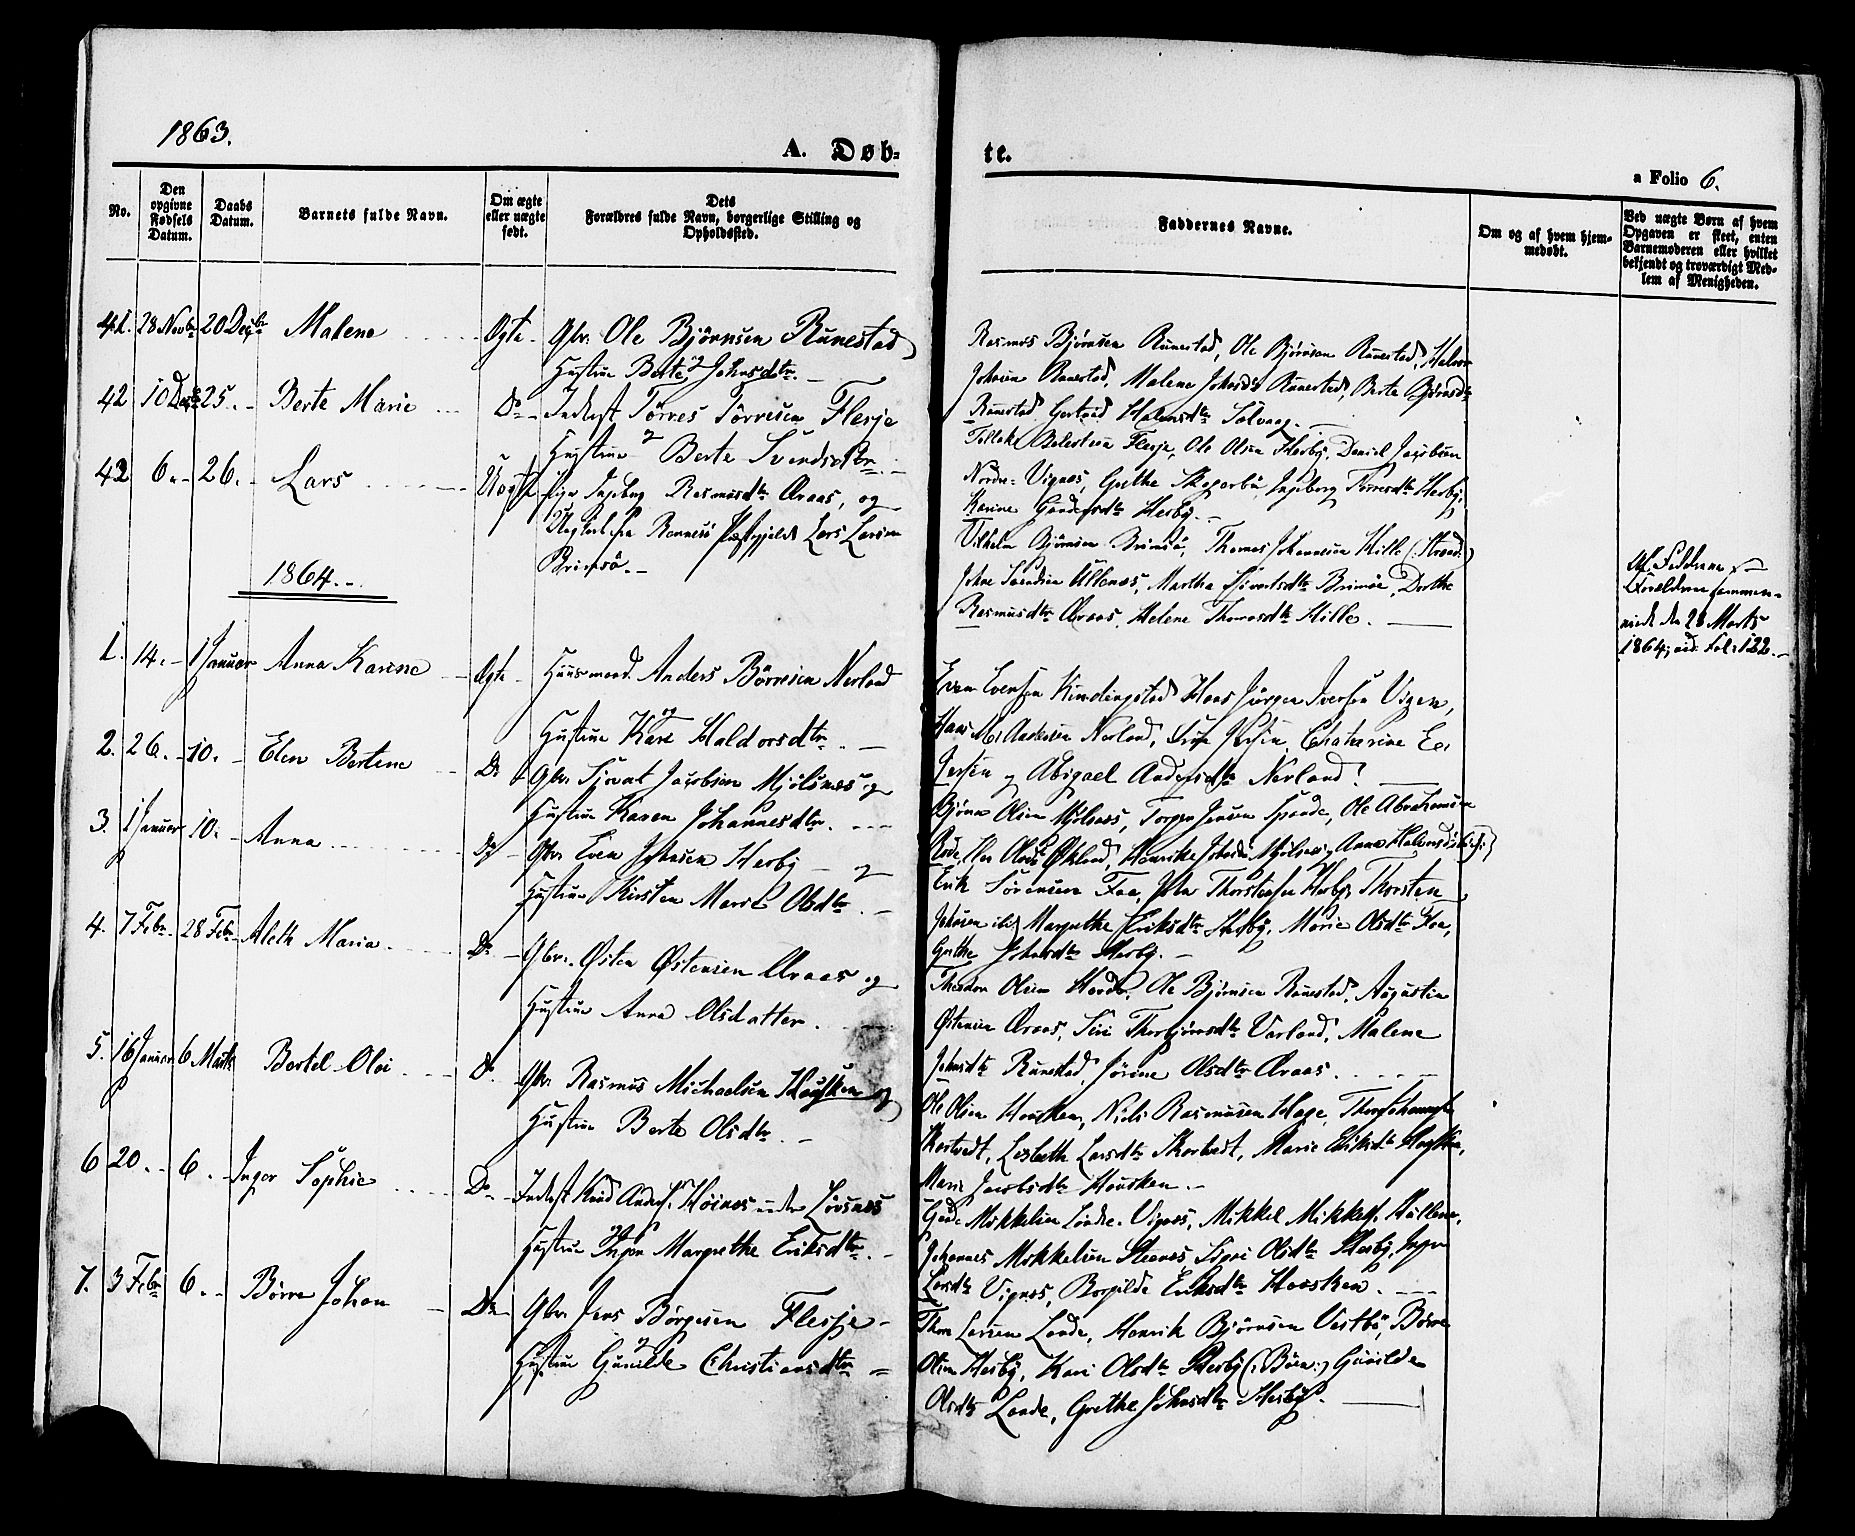 1863.
A. Døb-
te.
a Folio 6.
No.
Den opgivne Fødsels Datum.
Daabs Datum.
Barnets fulde Navn.
Om ægte eller uægte født.
Dets Forældres fulde Navn, borgerlige Stilling og Opholdssted.
Faddernes Navne.
Om og af hvem hjemmedøbt.
Ved uægte Børn af hvem Opgaven er skeet, enten Barnemoderen eller hvilket bekjendt og troværdigt Medlem af Menigheden.
41. 28 Novbr 20 Decbr Malene Ægte Gbr. Ole Bjørnsen Runestad
og Hustrue Berte Johnsdtr.
Rasmus Bjørnsen Runestad, Ole Bjørnsen Runestad, Halvor
Johnsen Runestad, Malene Johnsdtr Runestad, Berte Bjørnsdtr
Runestad, Gertrud Halvorsdtr Solvaag.
42 10 Decbr 25. Berte Marie Do Inderst Tørres Tørresen Flesje
og Hustrue Berte Svendsdtr.
Flesje, Ole Olsen Hesby, Daniel Jacobsen
Nordre-Vignes, Grethe Skogerbø, Ingeborg Tørresdtr Hesby,
Karine Hesby.
43 6. 26. Lars Uægte Pige Ingeborg Rasmusdtr Araas, og
Ungkarl fra Rennesø Præstegjeld Lars Larsen
Brimsø.
Vilhelm Bjørnsen Brimsø, Thomas Johannesen Hille (Strand)
John Svendsen Ullenæs, Martha Sivertsdtr Brimsøe, Dorthe
Rasmusdtr Araas, Helene Thomasdtr Hille.
Af Fadderne.
Forældrene sammen-
viede den 28 Marts
1864, vid. Fol: 122.
1864.
1. 14. 1 Januar Anna Karine Ægte Huusmand Anders Børresen Nerland
og Hustrue Kari Haldorsdtr.
Even Evensen Kindingstad, Hans Jørgen Iversen Vigen,
Nerland, Catharine
og Abigael Andersdtr Nerland.
2. 26. 10. Elen Bertine Do Gbr. Sivert Jacobsen Mjølsnes og
Hustrue Karen Johannesdtr.
Bjørn Olsen Mjølsnes, Torger Jensen Spande, Ole Abrahamsen
Økland, Henrikke Mjølsnes, Anna Halvorsdtr
3. 1 Januar 10. Anna Do Gbr. Even Johnsen Hesby og
Hustrue Kirsten Marie Olsdtr.
Erik Sørensen Foe, John Thorstensen Hesby, Thorsten
Johnsen ibid, Margrethe Eriksdtr Hesby, Marie Olsdtr Foe,
Grethe Johnsdtr Hesby.
4. 7 Febr. 28 Febr. Aleth Maria Do Gbr. Østen Østensen Araas og
Hustrue Anna Olsdatter.
Theodor Olsen, Ole Bjørnsen Runestad, Augustin
Østensen Araas, Siri Thorbjørnsdtr Varland, Malene
Johnsdtr Runestad, Jørine Olsdtr Araas.
5. 16 Januar 6 Marts Bertel Olai Do Gbr. Rasmus Michaelsen Hausken og
Hustrue Berte Olsdtr.
Ole Olsen Hausken, Niels Rasmusen Hage,
Skartvedt, Lisbeth Larsdtr Skartvedt, Marie Eriksdtr
Marie Jacobsdtr Hausken.
6 20. 6. Inger Sophie Do Inderst Knud Anders. Høines under Løvsnes
og Hustrue Inger Margrethe Eriksdtr.
Mikkelsen Søndre-Vignes, Mikkel Mikkels.
Johannes Mikkelsen Steenes, Sigri Olsdtr Hesby, Inger
Larsdtr Vignes, Borgilde Eriksdtr Hausken.
7. 3 Febr 6. Børre Johan Do Gbr. Jens Børgesen Flesje
og Hustrue Gunilde Christiansdtr
Thore Larsen Lande, Henrik Bjørnsen Vestbø, Børre
Olsen Hesby, Kari Olsdtr Hesby (Børn.) Gunilde
Olsdtr Lande, Grethe Johnsdtr Hesby.